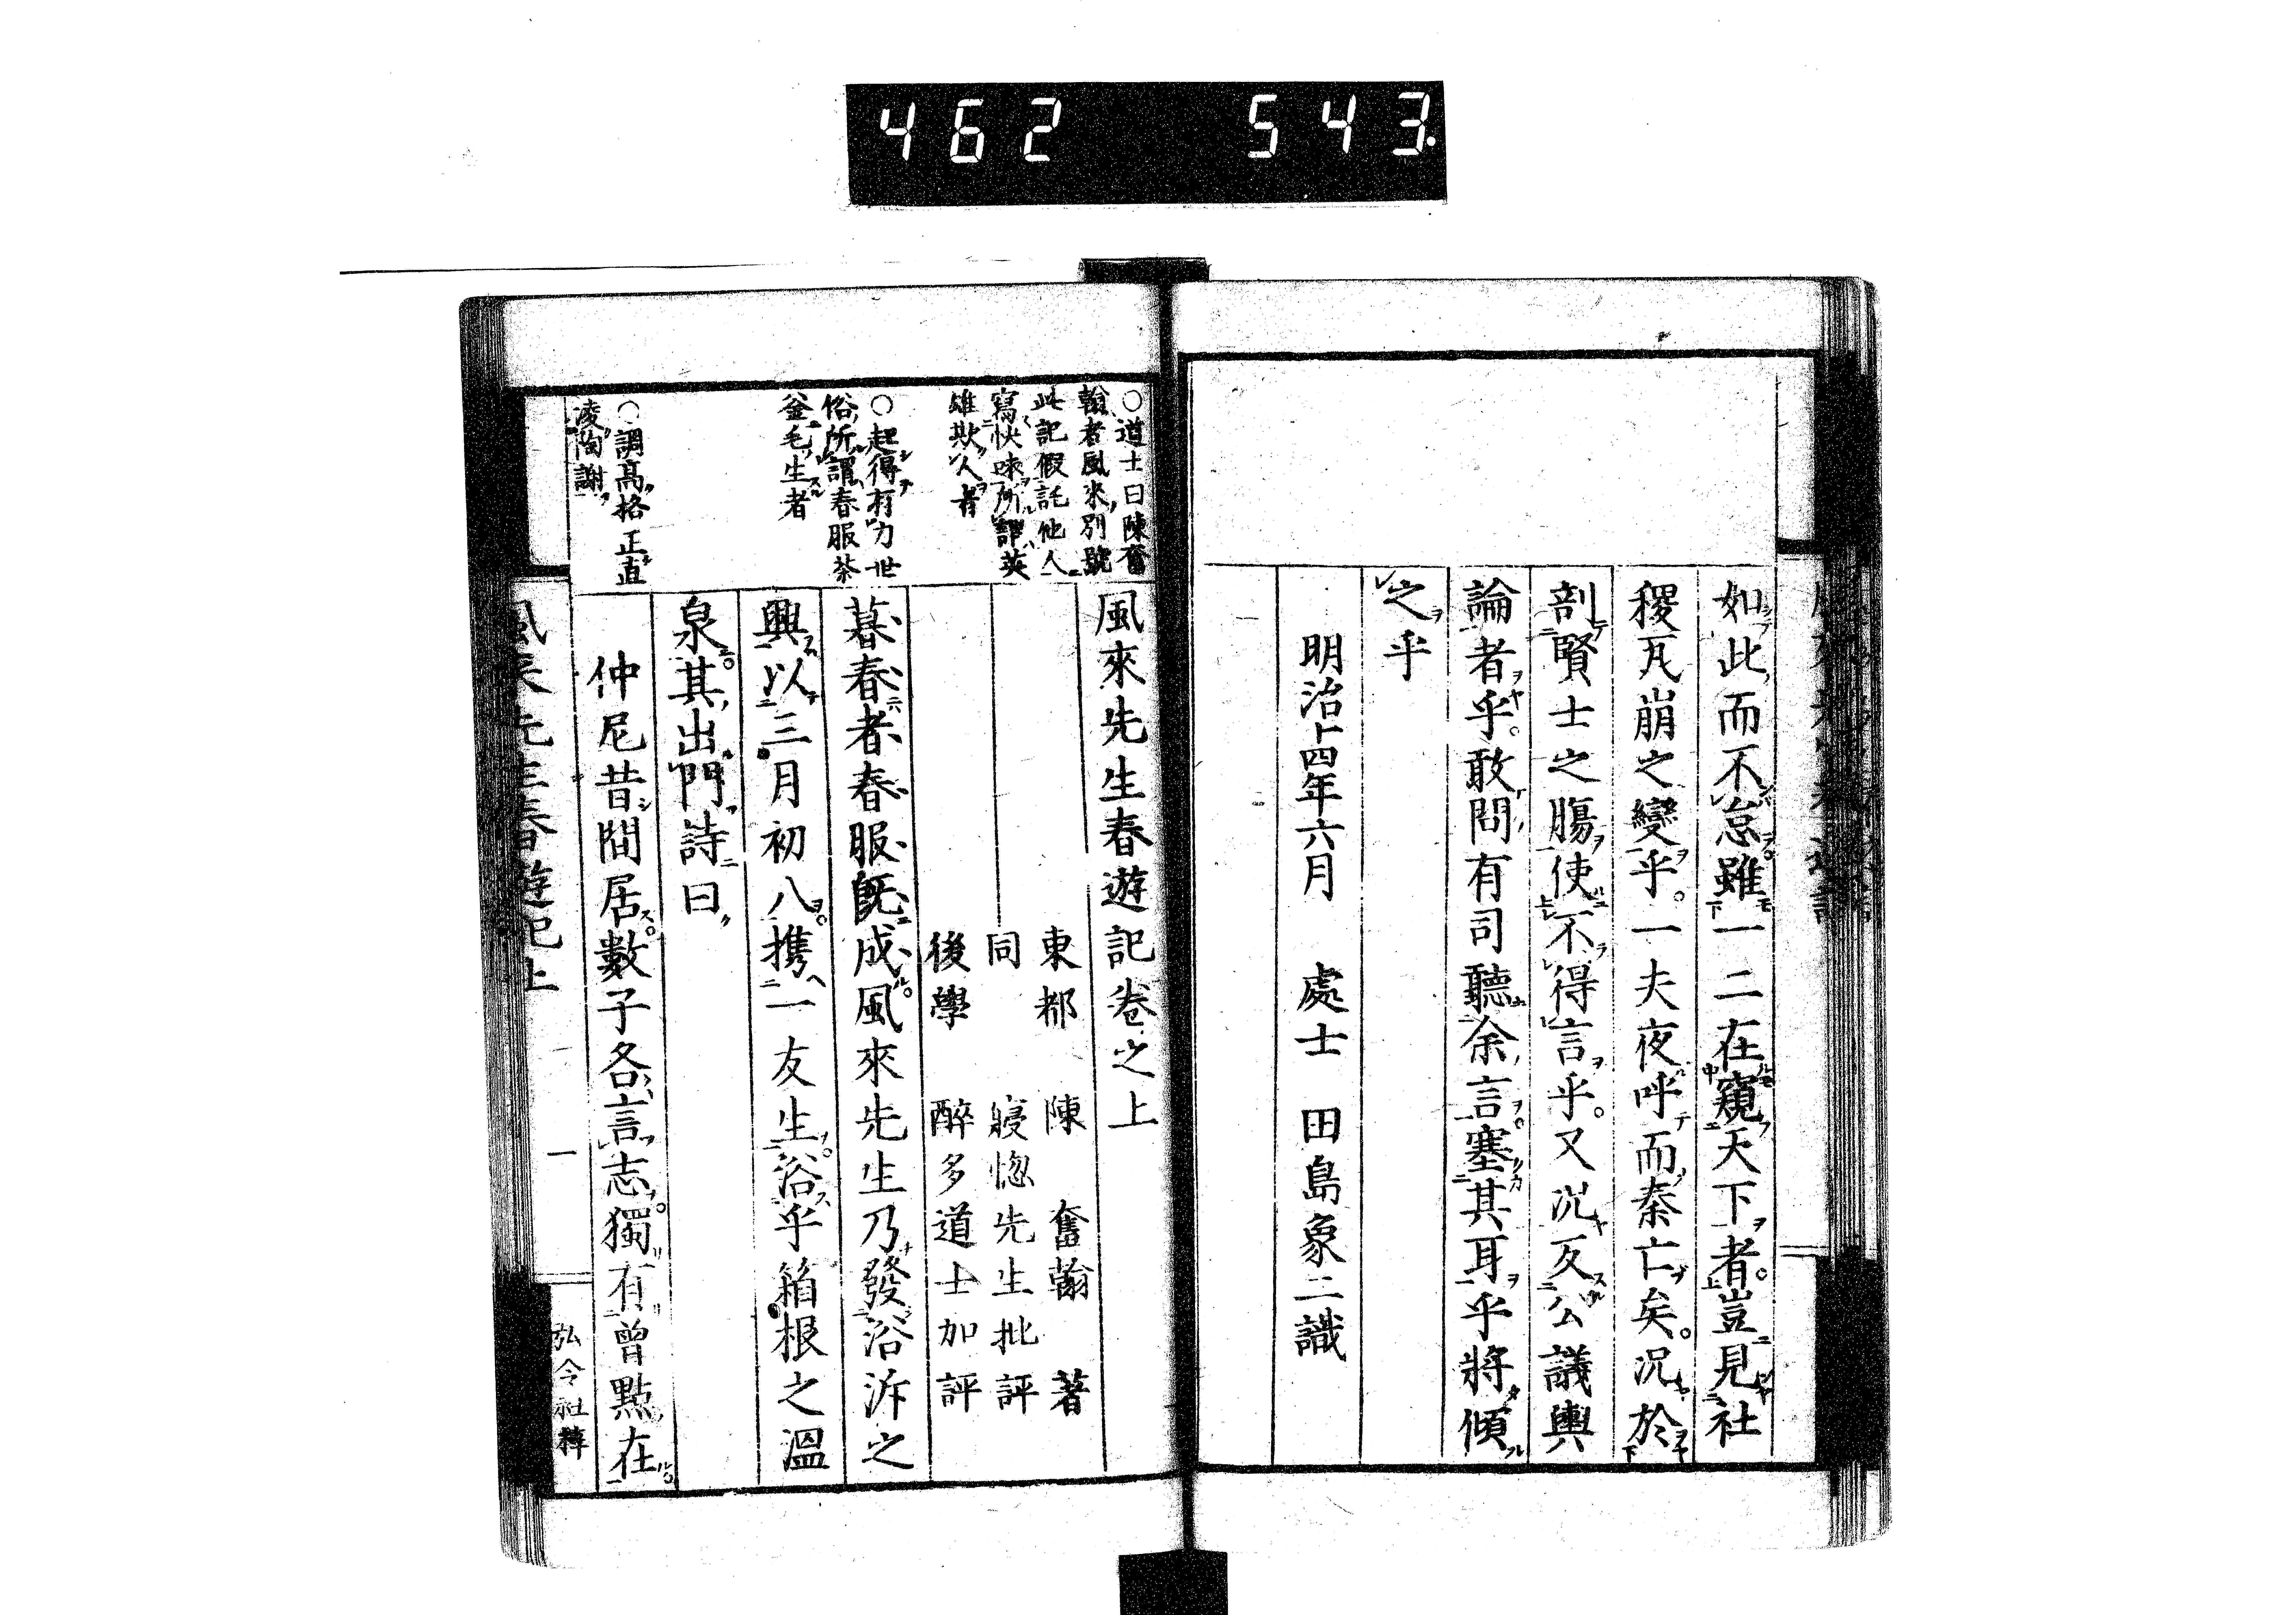 462 543.
如此而不怠雖一二在窺天下者。豈見社
稷瓦崩之變乎。一夫夜呼而秦亡矣。況於
剖賢士之膓使不得言乎。又況反公議輿
論者乎。敢問有司聽余言塞其耳乎將傾
之乎
明治十四年六月　處士　田島象二識
風來先生春遊記卷之上
東都　陳　奮翰　著
同　寢惚先生批評
後學　醉多道士加評
暮春者春服既成。風來先生乃發浴沂之
興以三月初八。携一友生。浴乎箱根之溫
泉。其出門詩曰
仲尼昔間居。數子各言志。獨有曾點在。
○道士曰陳奮
翰者風來別號
此記假託他人
寫快味所謂英
雄欺人者
○起得有力世
俗所謂春服茶
釜毛生者
○調高格正直
凌陶謝
風來先生春遊記上
一
弘令社梓